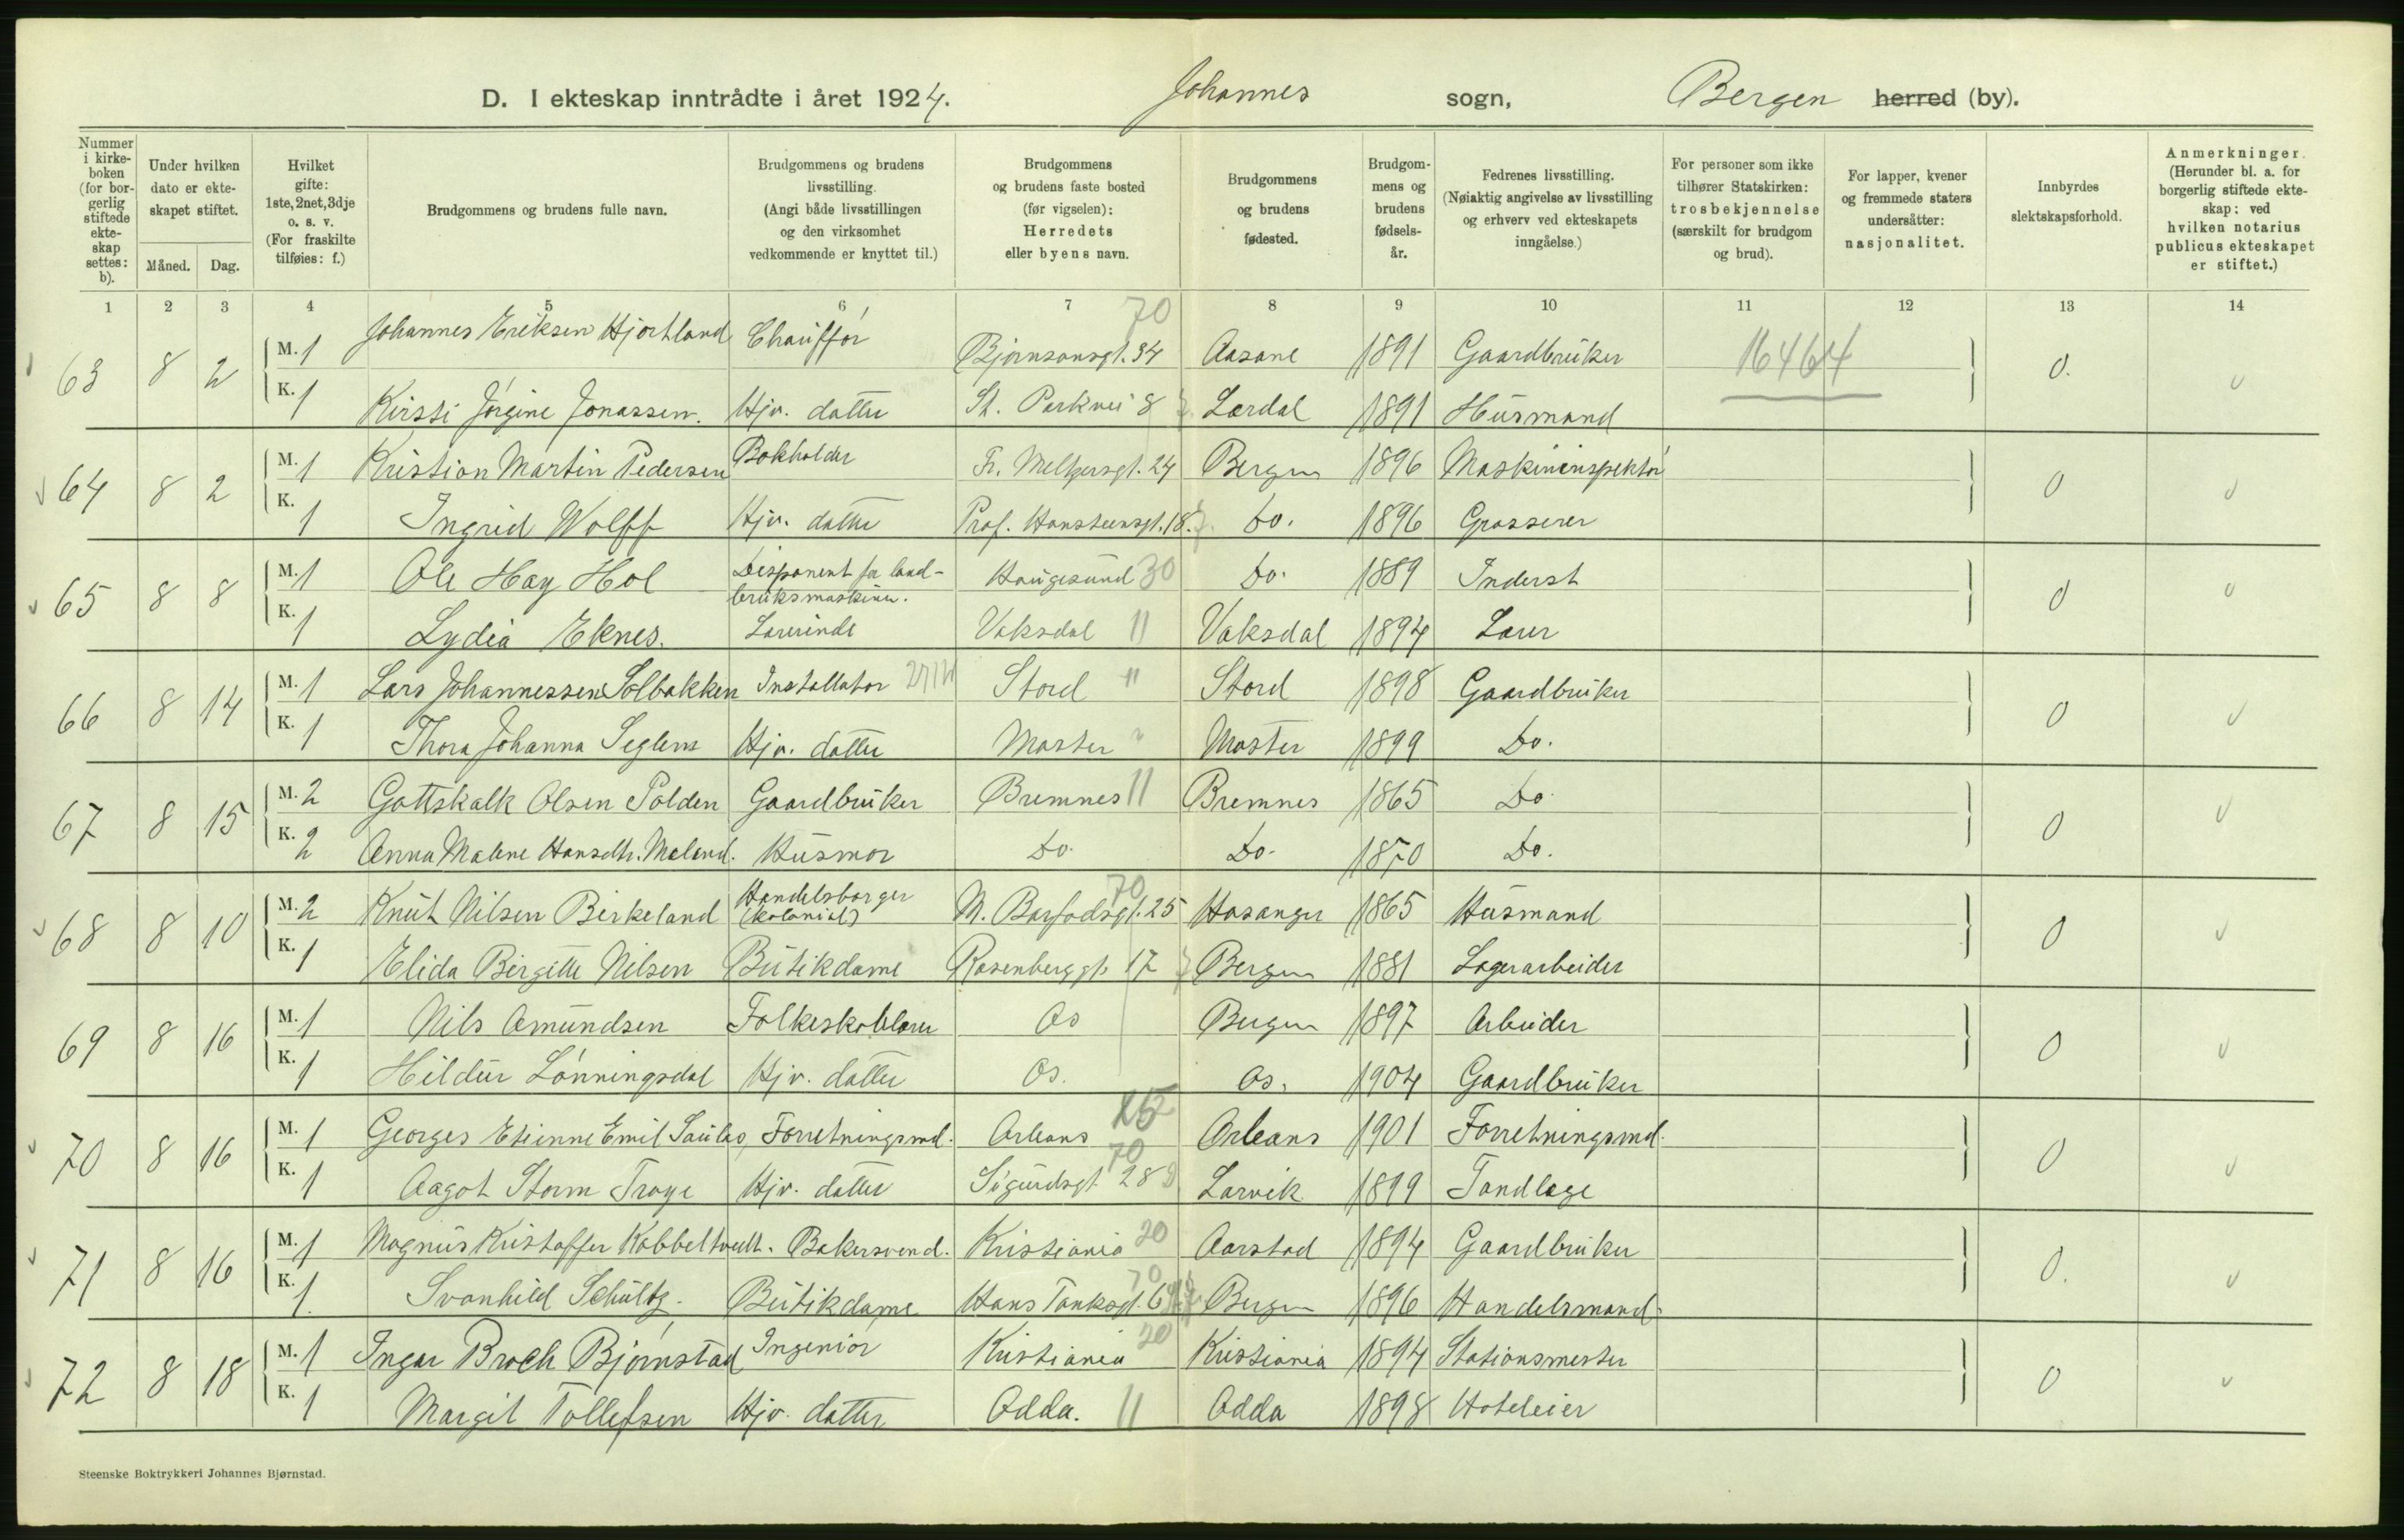 D. I ekteskap inntrådte i året 1924. Johannes sogn, Bergen herred (by).
Nummer i kirkeboken (for borgerlig stiftede ekteskap settes: b).
Under hvilken dato er ekteskapet stiftet.
Måned. Dag.
Hvilket gifte: 1ste, 2net, 3dje o. s. v. (For fraskilte tilføies: f.)
Brudgommens og brudens fulle navn.
Brudgommens og brudens livsstilling. (Angi både livsstillingen og den virksomhet vedkommende er knyttet til.)
Brudgommens og brudens faste bosted (før vigselen): Herredets eller byens navn.
Brudgommens og brudens fødested.
Brudgommens og brudens fødselsår.
Fedrenes livsstilling. (Nøiaktig angivelse av livsstilling og erhverv ved ekteskapets inngåelse.)
For personer som ikke tilhører Statskirken: trosbekjennelse (særskilt for brudgom og brud).
For lapper, kvener og fremmede staters undersåtter: nasjonalitet.
Innbyrdes slektskapsforhold.
Anmerkninger. (Herunder bl. a. for borgerlig stiftede ekteskap: ved hvilken notarius publicus ekteskapet er stiftet.)
1 2 3 4 5 6 7 8 9 10 11 12 13 14
70
63 8 2 M. 1 Johannes Eriksen Hjortland Chauffør Bjørnsonsgt. 34 Aasane 1891 Gaardbruker 16464 0.
K. 1 Kirsti Jørgine Jonassen. Hjv. datter St. Parkvei 8 Lærdal 1891 Husmand
64 8 2 M. 1 Kristian Martin Pedersen Bokholder Fr. Meltzersgt. 24 Bergen 1896 Maskininspektør 0
K. 1 Ingrid Wolff Hjv. datter Prof. Hansteensgt. 18. Do. 1896 Grosserer
65 8 8 M. 1 Ole Hay Hol Disponent for landbruksmaskin. Haugesund 30 Do. 1889 Inderst 0
K. 1 Lydia Eknes. Lærerinde Vaksdal 11 Vaksdal 1894 Lærer
66 8 14 M. 1 Lars Johannessen Solbakken Installatør Stord 11 Stord 1898 Gaardbruker 0
K. 1 Thora Johanna Seglem Hjv. datter Moster " Moster 1899 Do.
67 8 15 M. 2 Gottskalk Olsen Polden Gaardbruker Bremnes 11 Bremnes 1865 Do 0
K. 2 Anna Malene Hansdtr. Meland. Husmor Do. Do. 1870 Do.
70
68 8 10 M. 2 Knut Nilsen Birkeland Handelsborger (kolonial) M. Barfodsgt. 25 Hosanger 1865 Husmand 0
K. 1 Elida Birgitte Nilsen Butikdame Rosenberggt. 17 Bergen 1881 Lagerarbeider
69 8 16 M. 1 Nils Amundsen Folkeskolelærer Os Bergen 1897 Arbeider 0
K. 1 Hildur Lønningsdal Hjv. datter Os. Os. 1904 Gaardbruker
70 8 16 M. 1 Georges Etienne Emil Saulas, Forretningsmd. Orleans Orleans 1901 Forretningsmd. 0
70
K. 1 Aagot Storm Troye Hjv. datter Sigurdsgt 28 Larvik 1899 Tandlæge
71 8 16 M. 1 Magnus Kristoffer Kobbeltvedt. Bakersvend. Kristiania 20 Aarstad 1894 Gaardbruker 0.
70
K. 1. Svanhild Schultz. Butikdame Hans Tanksgt. 6 Bergen 1896 Handelsmand.
72 8 18 M. 1 Ingar Broch Bjørnstad Ingeniør Kristiania 20 Kristiania 1894 Stationsmester 0
K. 1 Margit Tollefsen Hjv. datter Odda. 11 Odda 1898 Hoteleier
Steenske Boktrykkeri Johannes Bjørnstad.